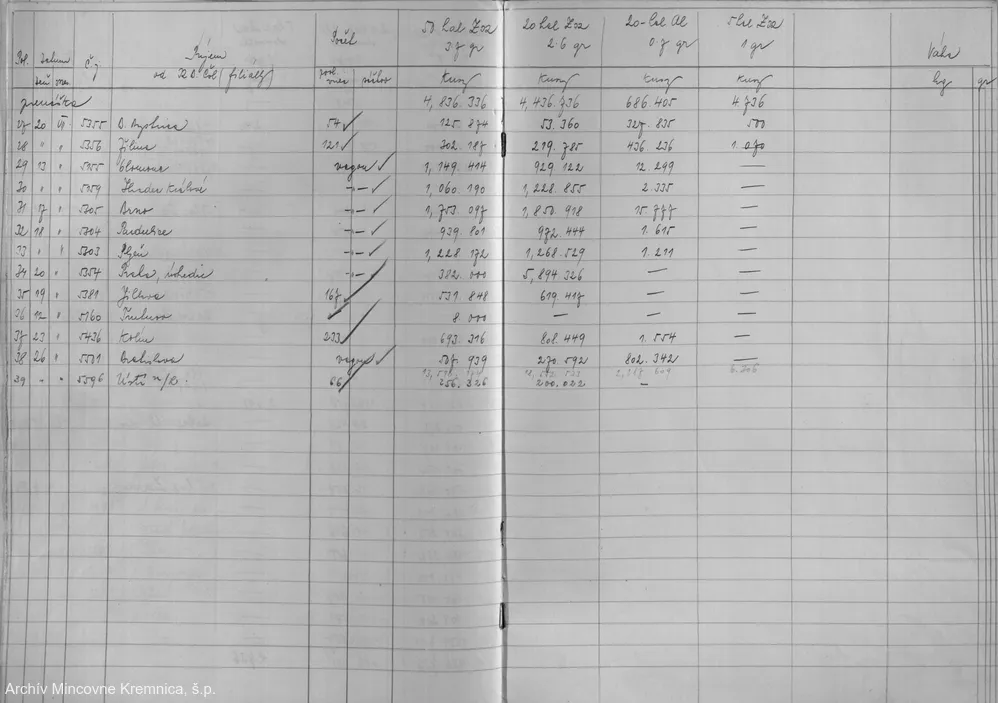 Pol. datum č.j. Príjem Počet 50 hal Zn 20 hal Zn 20-hal Al 5 hal Zn Váha
deň mes. od filiálky vagon 3.7 gr 2.6 gr 0.7 gr 1 gr
kusy kusy kusy kusy kg gr
prenáška 4,836.336 4,436.736 686.405 4.736
27 20 VI 5355 B. Bystrica 54 125.874 53.360 327.835 500
28 " " 5356 Žilina 121 302.187 219.785 436.236 1.070
29 13 " 5155 Olomouc vagon 1,149.414 929.122 12.299 —
30 " " 5159 Hradec Králové -"- 1,060.190 1,228.855 2.335 —
31 17 " 5205 Brno -"- 1,753.097 1,850.918 15.777 —
32 18 " 5204 Pardubice -"- 939.801 972.444 1.615 —
33 " " 5203 Plzeň -"- 1,228.172 1,268.529 1.211 —
34 20 " 5354 Praha, ústredie -"- 382.000 5,894.326 — —
35 19 " 5381 Jihlava 167 531.848 619.417 — —
36 12 " 5160 8.000 — — —
37 23 " 5436 Kolín 233 693.316 808.449 1.554 —
38 26 " 5501 Bratislava vagon 507.939 270.592 802.342 —
39 " " 5596 Ústí n/L. 66 256.326 200.022 —
Archív Mincovne Kremnica, š.p.